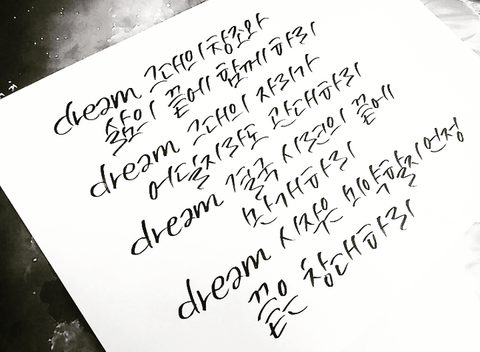 dream 그대의 창조와
삶의 끝에 함께하리
dream 그대의 자리가
어딜지라도 관대하리
dream 결국 시련의 끝에
만개하리
dream 시작은 미약할지언정
끝은 창대하리